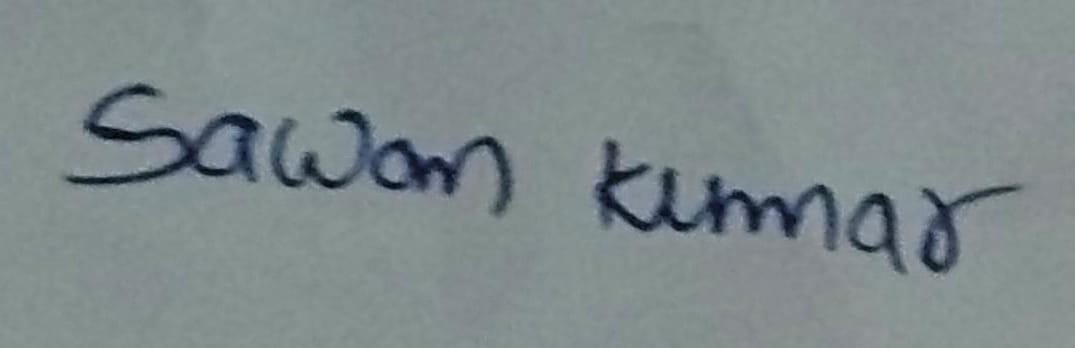 Sawan Kumar